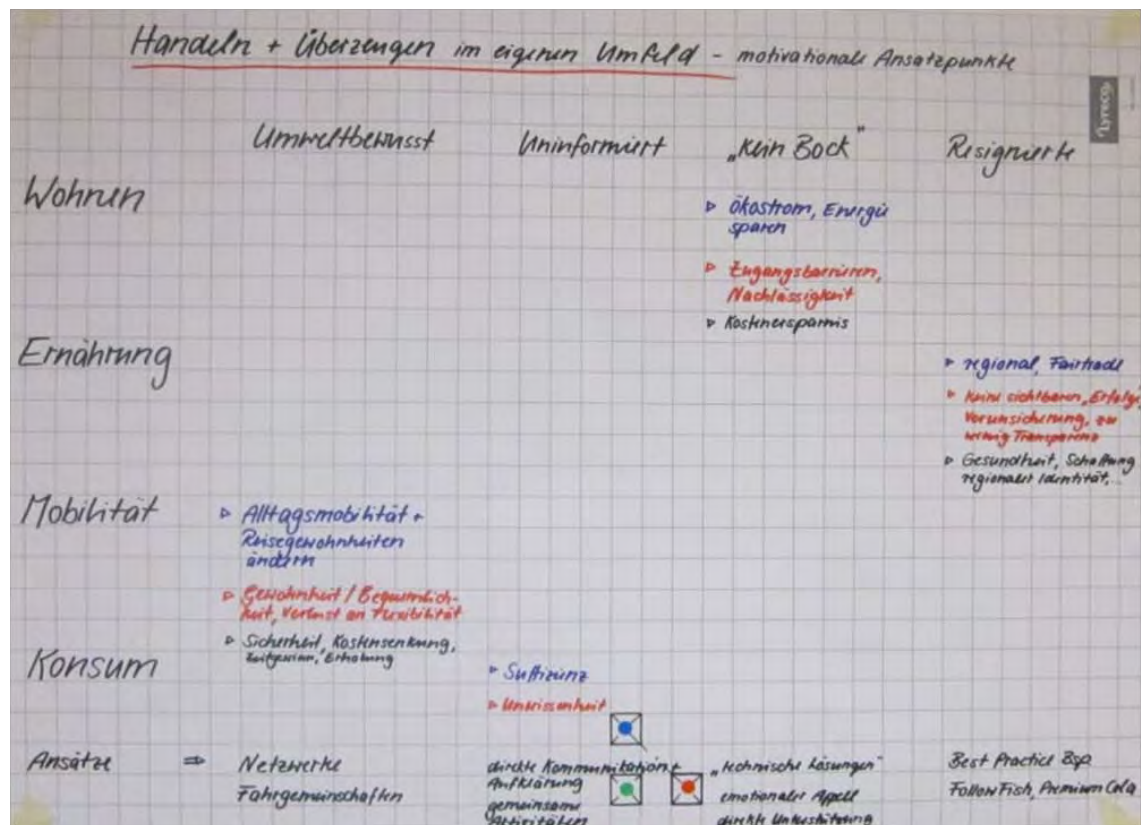 Handeln + Überzeugen im eigenen Umfeld - motivationale Ansatzpunkte
Lyreco
Umweltbewusst Uninformiert „Kein Bock" Resignierte
Wohnen
▹ Ökostrom, Energie
sparen
▹ Zugangsbarrieren,
Nachlässigkeit
▹ Kostenersparnis
Ernährung
▹ regional, Fairtrade
▹ Keine sichtbaren „Erfolge
Verunsicherung, zu
wenig Transparenz
▹ Gesundheit, Schaffung
regionaler Identität,...
Mobilität
▹ Alltagsmobilität +
Reisegewohnheiten
ändern
▹ Gewohnheit / Bequemlich-
keit, Verlust an Flexibilität
▹ Sicherheit, Kostensenkung,
Zeitgewinn, Erholung
Konsum
▹ Suffizienz
▹ Unwissenheit
Ansätze ⇒
Netzwerke
Fahrgemeinschaften
direkte Kommunikation +
Aufklärung
gemeinsame
Aktivitäten
„technische Lösungen"
emotionaler Appell
direkte Unterstützung
Best Practice Bsp.
Follow Fish, Premium Cola